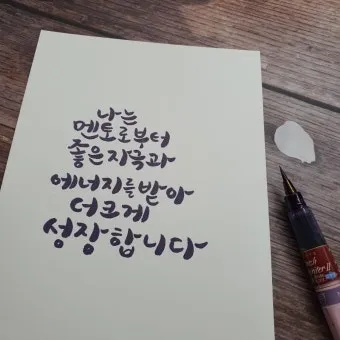 나는
멘토로부터
좋은 자극과
에너지를 받아
더 크게
성장합니다